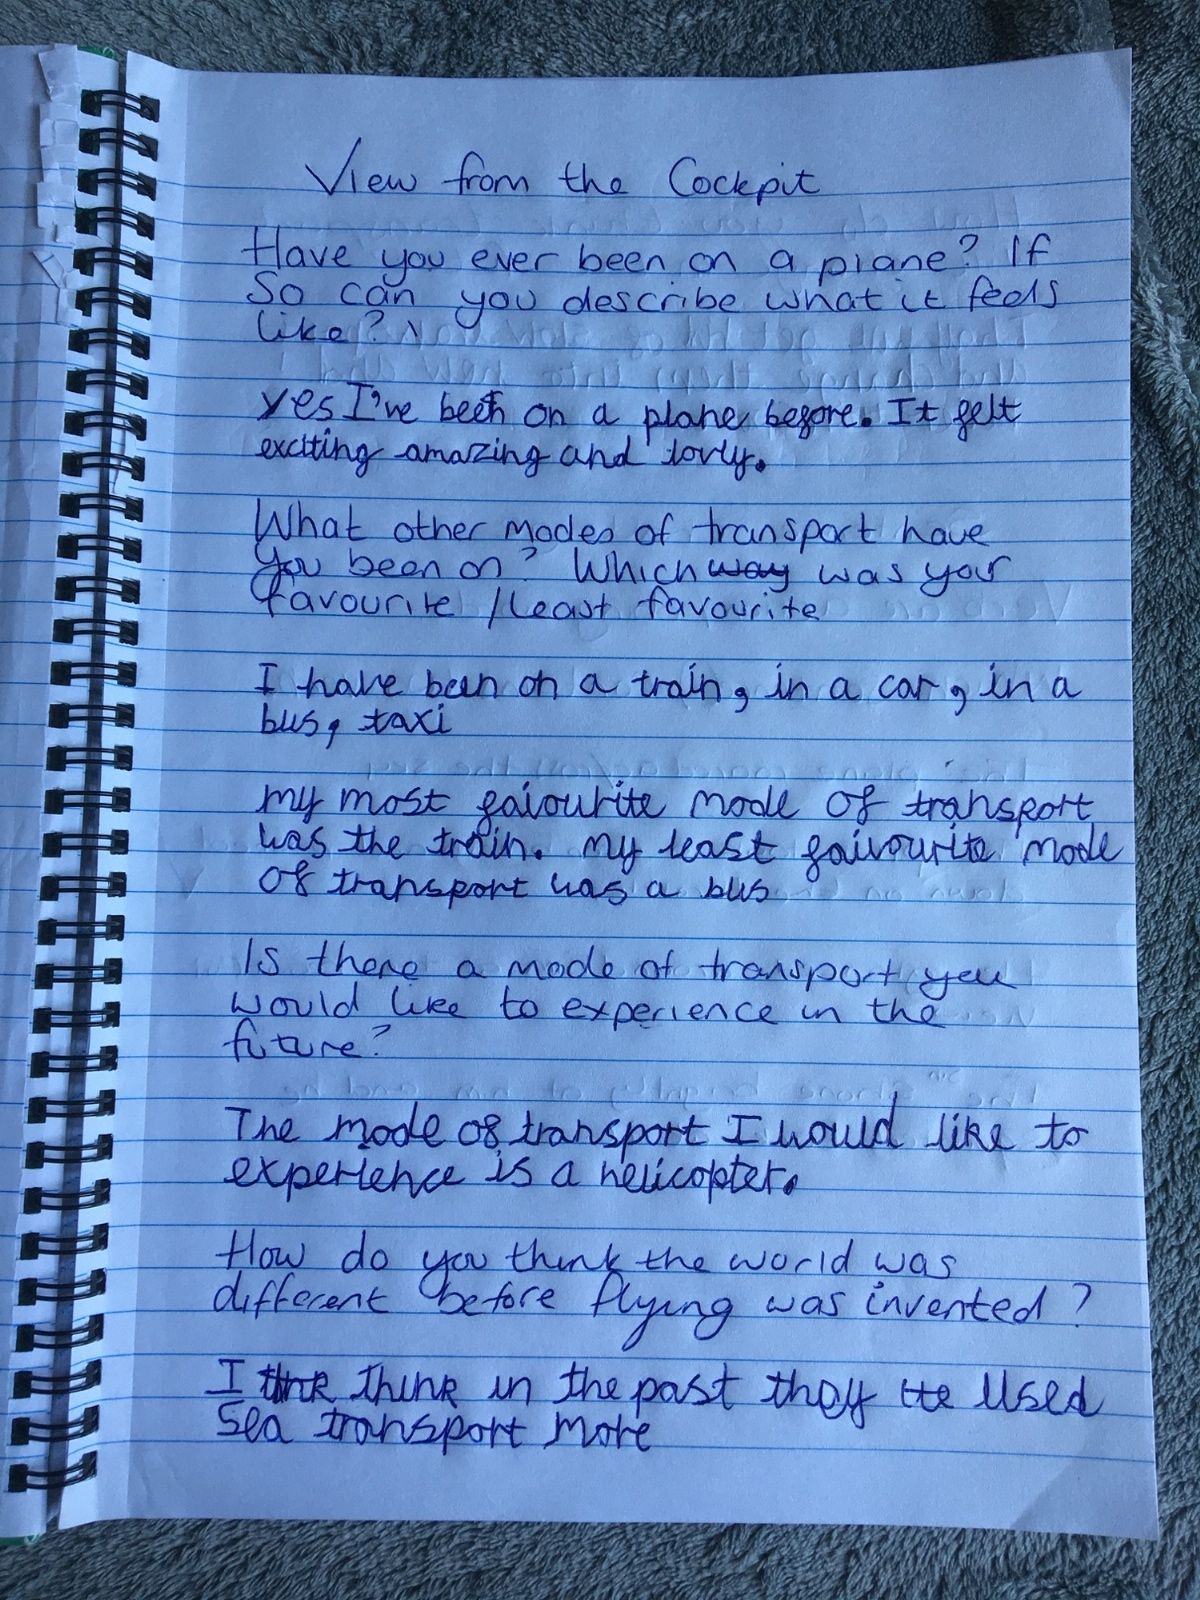 View from the Cockpit
Have you ever been on a plane? If
So can you describe what it feels
like?
yes I've been on a plane before. It felt
exciting amazing and lovly.
What other modes of transport have
you been on? Which way was your
favourite / least favourite
I have been on a train, in a car, in a
bus, taxi
my most faivourite mode of transport
was the train. my least faivourite mode
of transport was a bus
Is there a mode of transport you
would like to experience in the
future?
The mode of transport I would like to
experience is a helicopter.
How do you think the world was
different before flying was invented?
I think in the past they used
Sea transport more